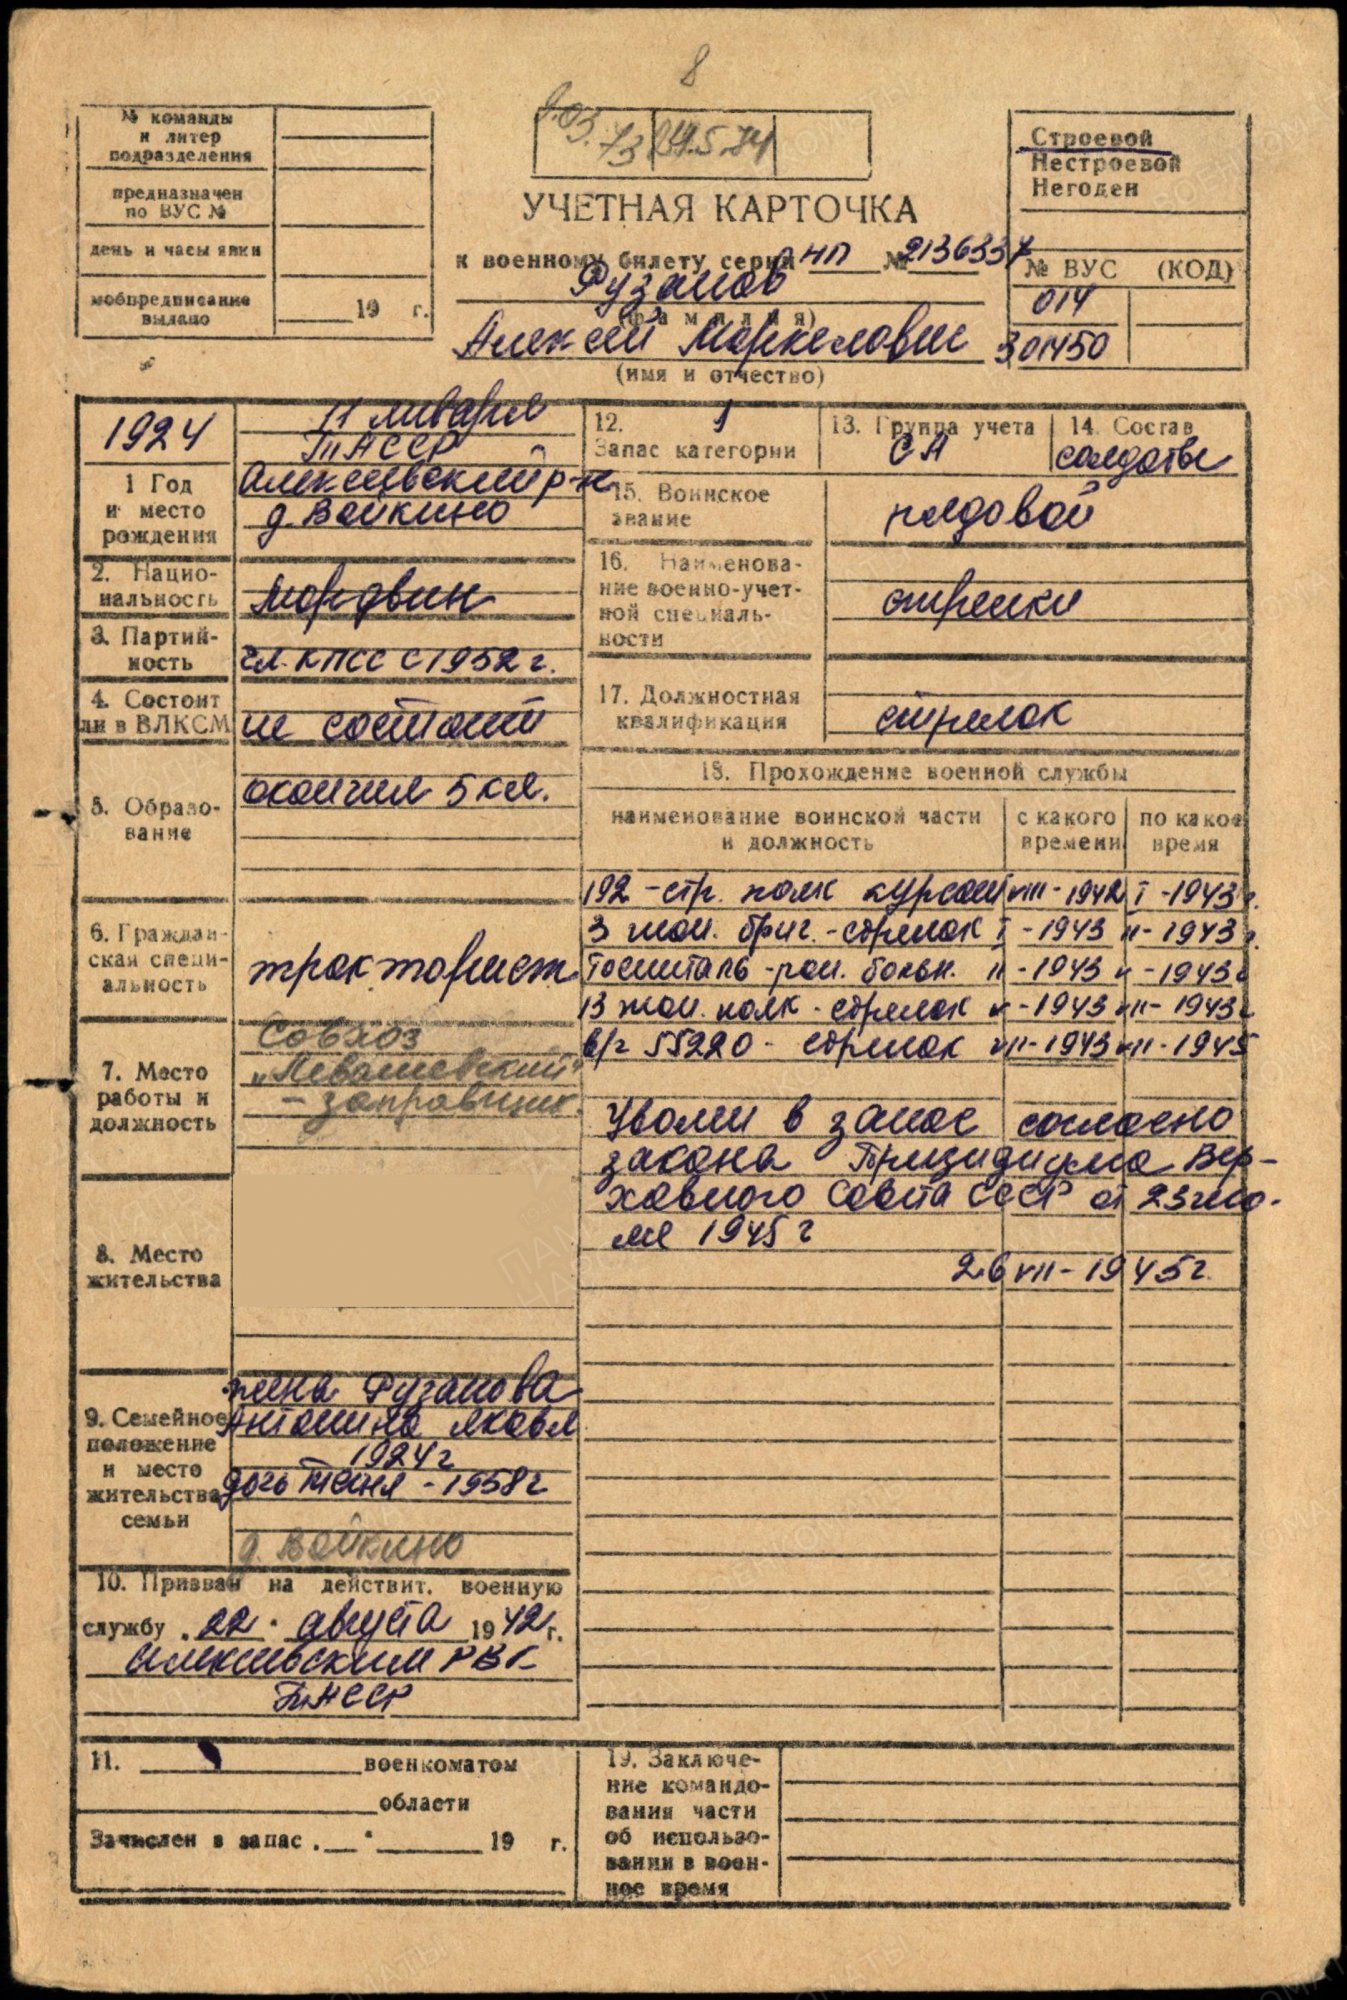 8
№ команды
и литер
подразделения
предназначен
по ВУС №
день и часы явки
мобпредписание
выдано
19 г.
9.03.
73
УЧЕТНАЯ КАРТОЧКА
к военному билету серии НП № 2136337
Фузанов
(фамилия)
Алексей Маркелович
(имя и отчество)
Строевой
Нестроевой
Негоден
№ ВУС (КОД)
014
301450
1924
1 Год
и место
рождения
11 января
ТАССР
Алексеевский р-н
д. Войкино
2. Нацио-
нальность
мордвин
3. Партий-
ность
чл. КПСС с 1952 г.
4. Состоит
ли в ВЛКСМ
не состоит
5. Образо-
вание
окончил 5 кл.
6. Граждан-
ская специ-
альность
тракторист
7. Место
работы и
должность
Совхоз
„Левашевский"
- заправщик.
8. Место
жительства
9. Семейное
положение
и место
жительства
семьи
жена Фузанова
Антонина Яковл
1924 г
дочь Таня - 1958 г
д. Войкино
10. Призван на действит. военную
службу „22" августа 1942 г.
Алексеевским РВК
ТАССР
11. военкоматом
области
Зачислен в запас 19 г.
12. 1
Запас категории
13. Группа учета
СА
14. Состав
солдаты
15. Воинское
звание
рядовой
16. Наименова-
ние военно-учет-
ной специаль-
ности
стрелки
17. Должностная
квалификация
стрелок
18. Прохождение военной службы
наименование воинской части
и должность
с какого
времени
по какое
время
192 - стр. полк курсант VIII - 1942 I - 1943 г.
3 - стрелок I - 1943 II - 1943 г.
Госпиталь - ран. больн. II - 1943 V - 1943 г
13 полк - стрелок V - 1943 VII - 1943 г
в/ч 55220 - стрелок VII - 1943 VII - 1945
Уволен в запас согласно
закона Призидиума Вер-
ховного Совета СССР от 23 ию-
ня 1945 г
26 VII - 1945 г.
19. Заключе-
ние командо-
вания части
об использо-
вании в воен-
ное время